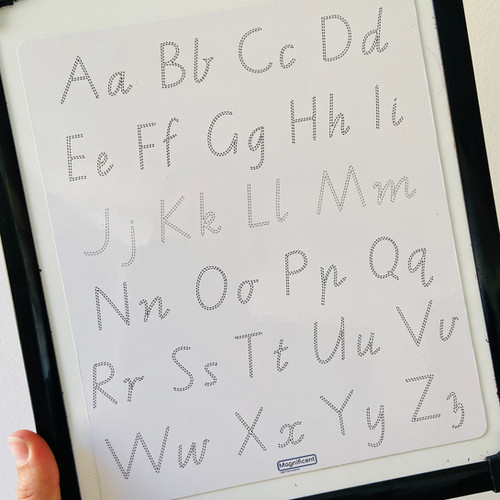 Aa Bb Cc Dd
Ee Ff Gg Hh Ii
Jj Kk Ll Mm
Nn Oo Pp Qq
Rr Ss Tt Uu Vv
Ww Xx Yy Zz
Magnificent